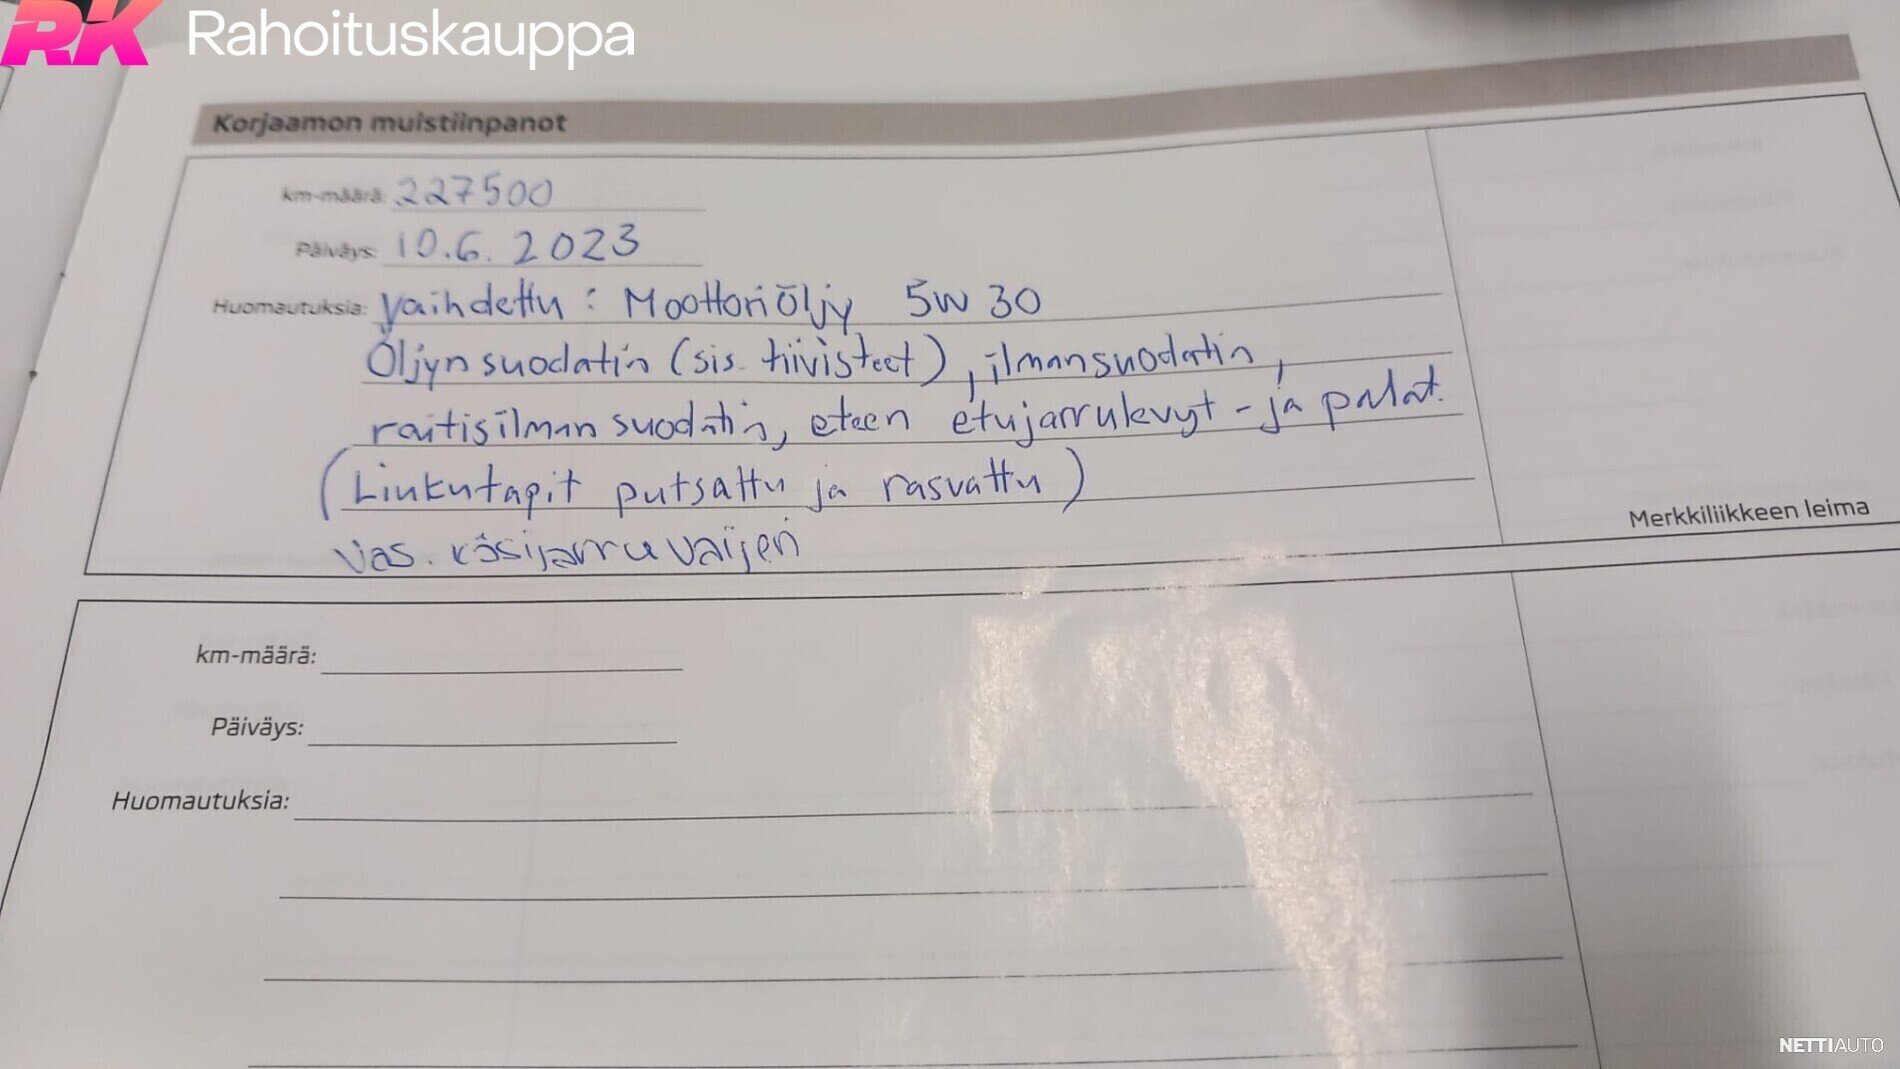 RK Rahoituskauppa
Korjaamon muistiinpanot
km-määrä: 227500
Päiväys: 10.6. 2023
Huomautuksia: Vaihdettu: Moottoriöljy 5W 30
Öljynsuodatin (sis. tiivisteet), ilmansuodatin,
raitisilman suodatin, eteen etujarrulevyt - ja palat.
(Liukutapit putsattu ja rasvattu)
Vas. käsijarruvaijeri
Merkkiliikkeen leima
km-määrä:
Päiväys:
Huomautuksia:
NETTIAUTO